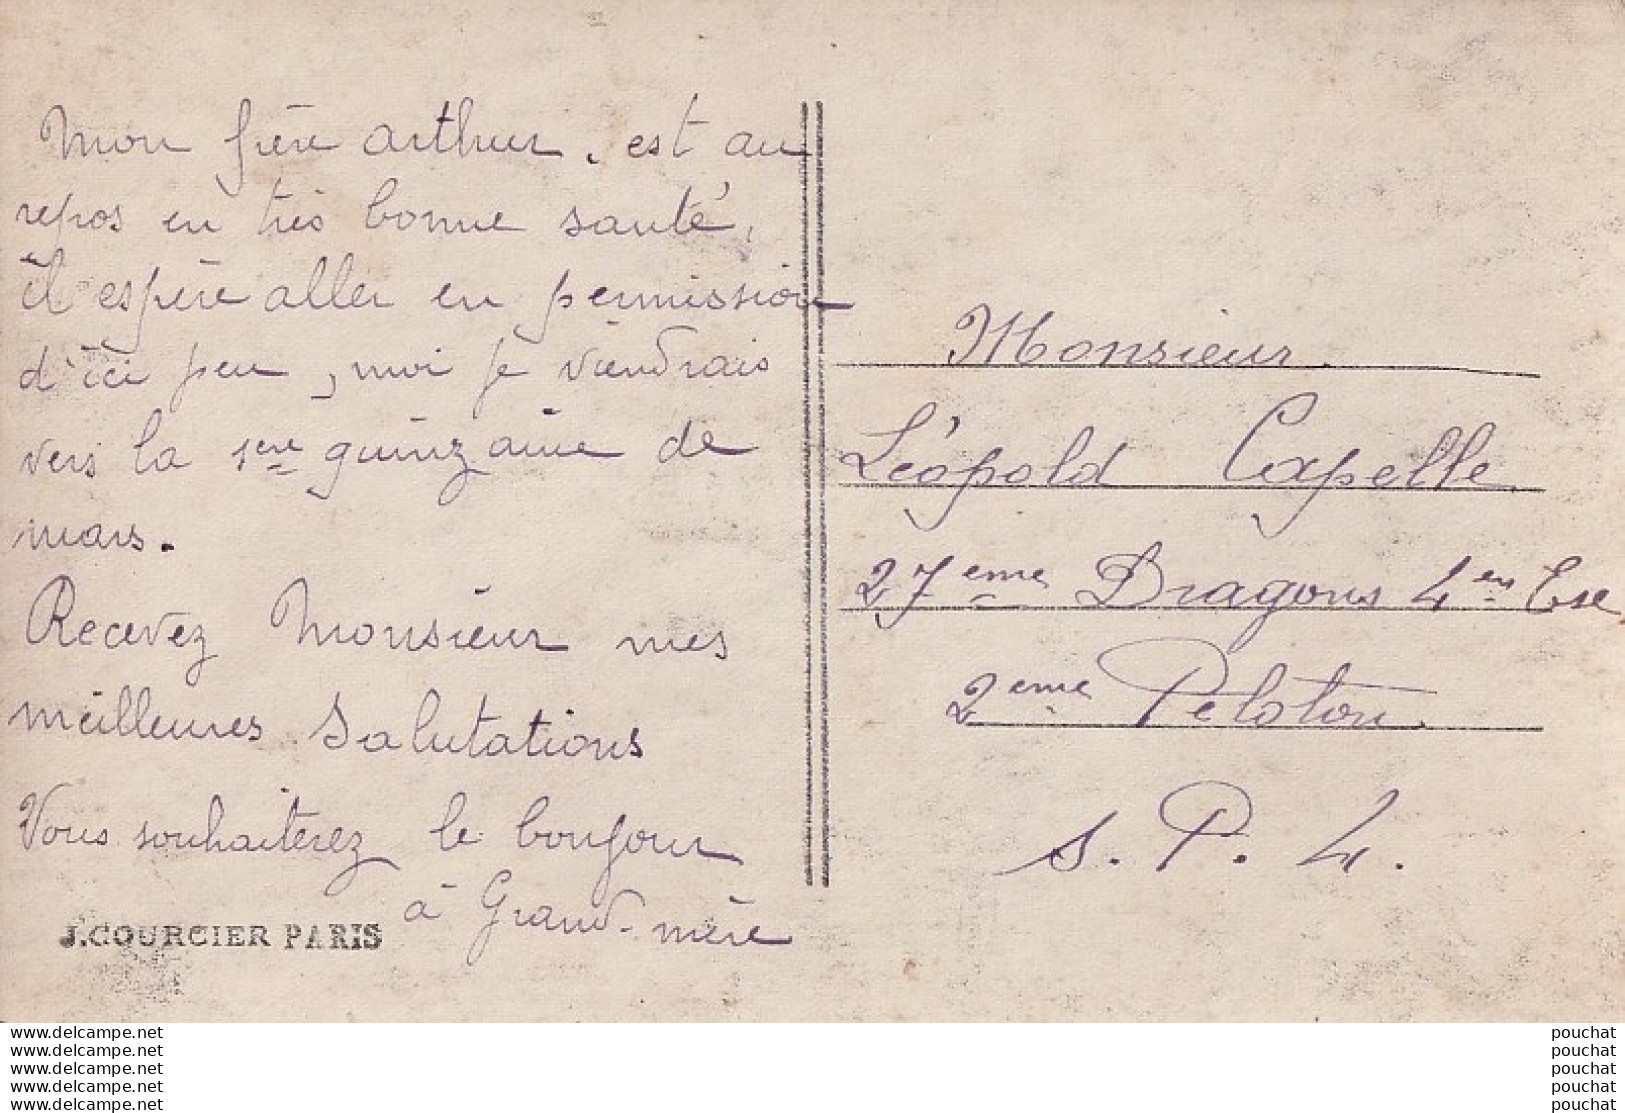 Mon frère arthur. est au
repos en très bonne santé,
il espère aller en permission
d'ici peu, moi je viendrais
vers la 1ere quinzaine de
mars.
Recevez Monsieur mes
meilleures Salutations
Vous souhaiterez le bonjour
à Grand-mère
J.COURCIER PARIS
Monsieur.
Léopold Capelle
27eme Dragons 4en Ese
2eme Peloton.
S. P. 4.
www.delcampe.net
www.delcampe.net
www.delcampe.net
www.delcampe.net
www.delcampe.net
pouchat
pouchat
pouchat
pouchat
pouchat